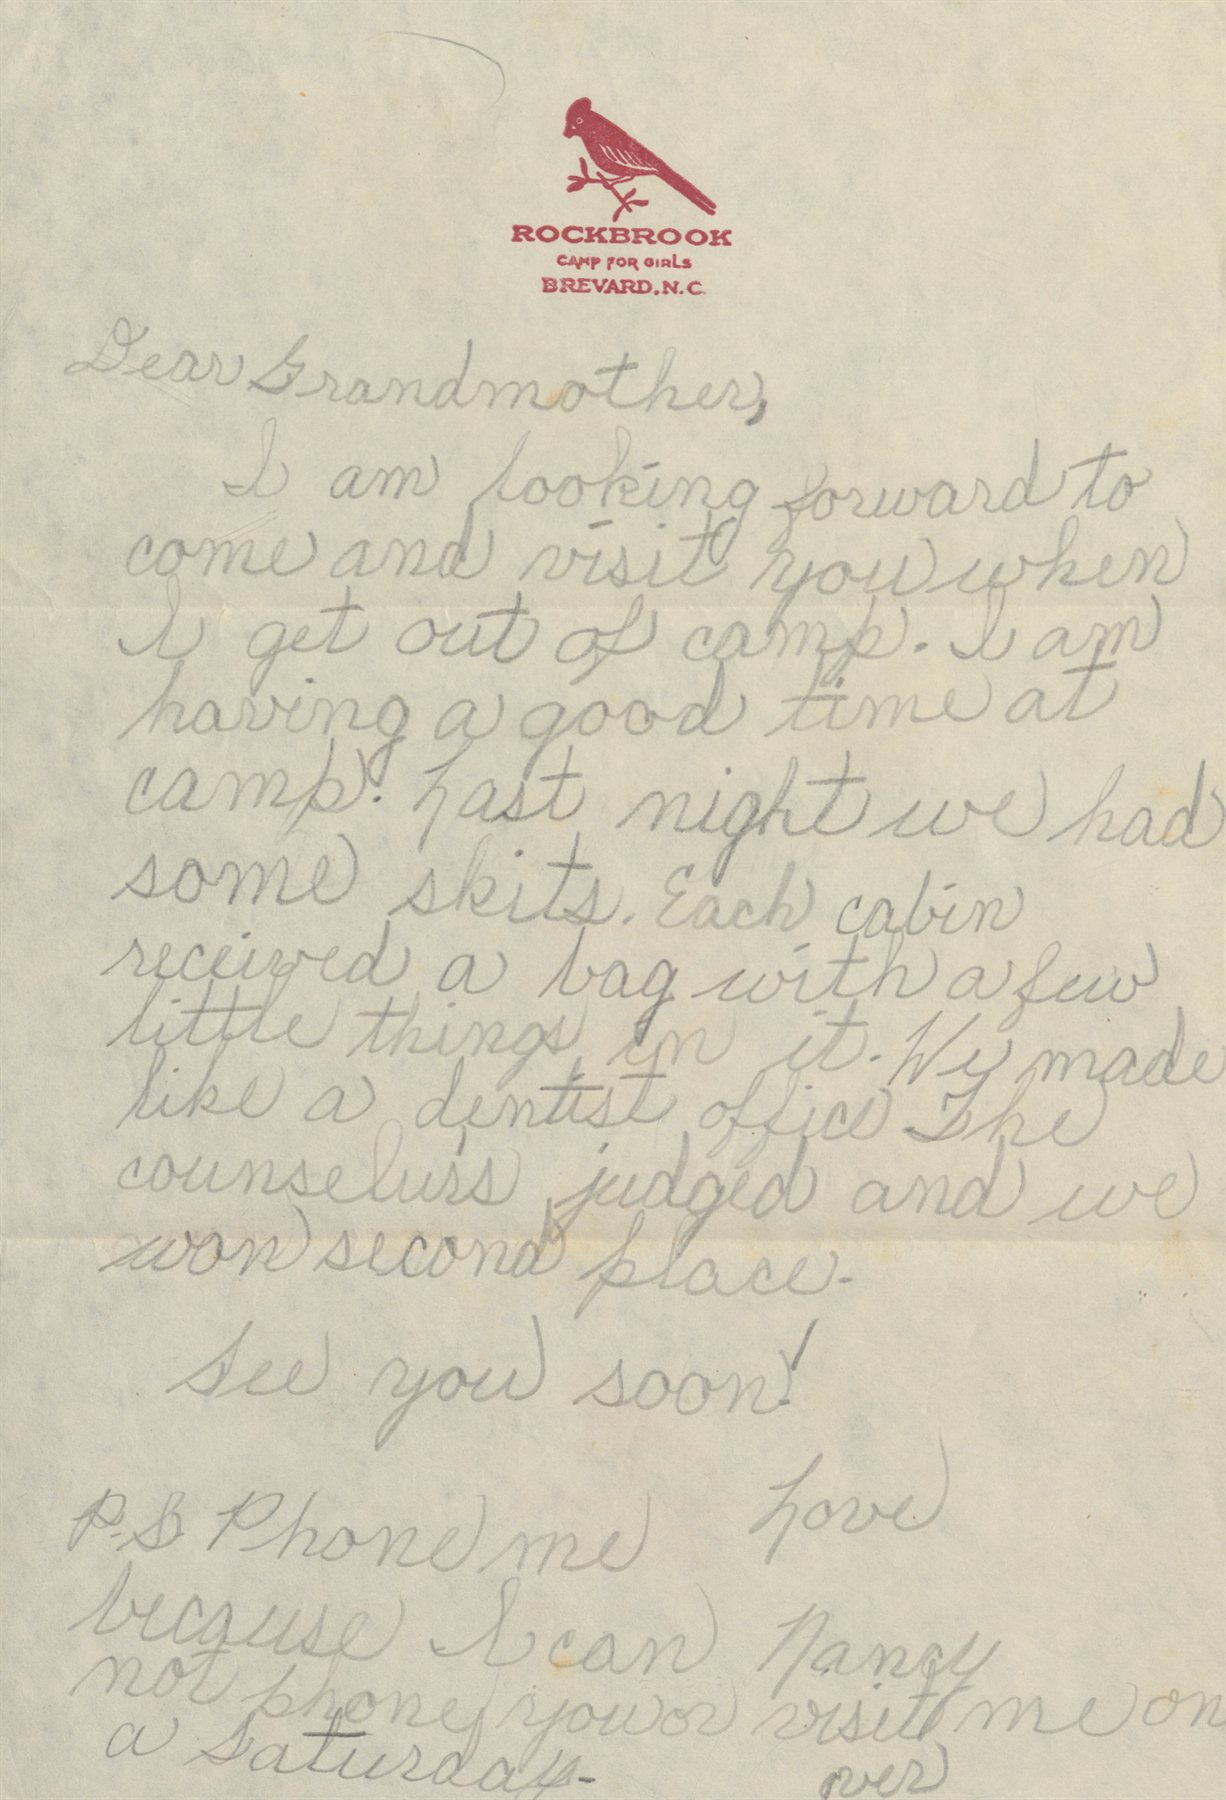 ROCKBROOK
CAMP FOR GIRLS
BREVARD, N.C.
Dear Grandmother,
I am looking forward to
come and visit you when
I get out of camp. I am
having a good time at
camp. Last night we had
some skits. Each cabin
received a bag with a few
little things in it. We made
like a dentist office. The
counselurs judged and we
won second place.
See you soon!
Love
Nancy
P.S. Phone me
because I can
not phone you or visit me on
a Saturday.
over